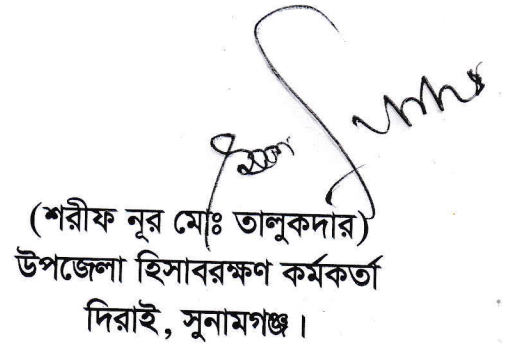 (শরীফ নূর মোঃ তালুকদার)
উপজেলা হিসাবরক্ষণ কর্মকর্তা
দিরাই, সুনামগঞ্জ।